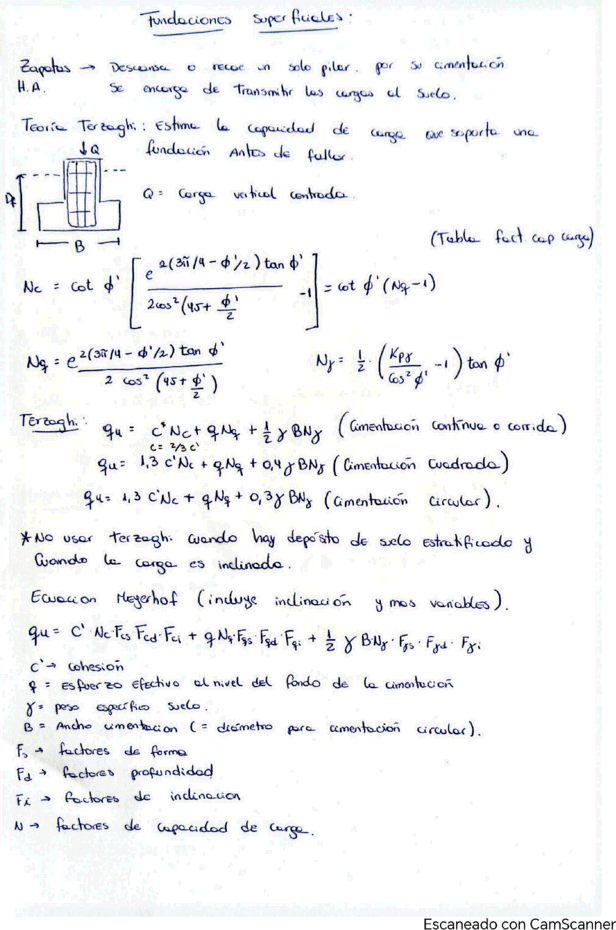 Fundaciones Superficiales:
Zapatas → Descansa o recae un solo pilar. por su cimentación
H.A. Se encarga de transmitir las cargas al suelo.
Teoría Terzaghi: Estima la capacidad de carga que soporta una
fundación Antes de fallar.
↓Q
Df
B
Q = Carga vertical centrada.
(Tabla fact. cap carga)
Nc = cot ϕ' [ e^{2(3π/4 - ϕ'/2) tan ϕ'} / 2cos²(45 + ϕ'/2) - 1 ] = cot ϕ' (Nq - 1)
Nq = e^{2(3π/4 - ϕ'/2) tan ϕ'} / 2 cos² (45 + ϕ'/2)
Nγ = 1/2 · (Kpγ / cos² ϕ' - 1) tan ϕ'
Terzaghi: qu = c* Nc + qNq + 1/2 γ BNγ (Cimentación continua o corrida)
c = 2/3 c'
qu = 1,3 c'Nc + qNq + 0,4 γ BNγ (Cimentación Cuadrada)
qu = 1,3 c'Nc + qNq + 0,3 γ BNγ (Cimentación circular).
*No usar terzaghi cuando hay depósito de suelo estratificado y
Cuando la carga es inclinada.
Ecuacion Meyerhof (incluye inclinación y mas variables).
qu = C' Nc·Fcs Fcd·Fci + qNq·Fqs·Fqd·Fqi + 1/2 γ BNγ·Fγs·Fγd·Fγi
c' → cohesión
q = esfuerzo efectivo al nivel del fondo de la cimentación
γ = peso específico suelo.
B = Ancho cimentacion (= diámetro para cimentación circular).
Fs → factores de forma
Fd → factores profundidad
Fi → factores de inclinacion
N → factores de capacidad de carga.
Escaneado con CamScanner